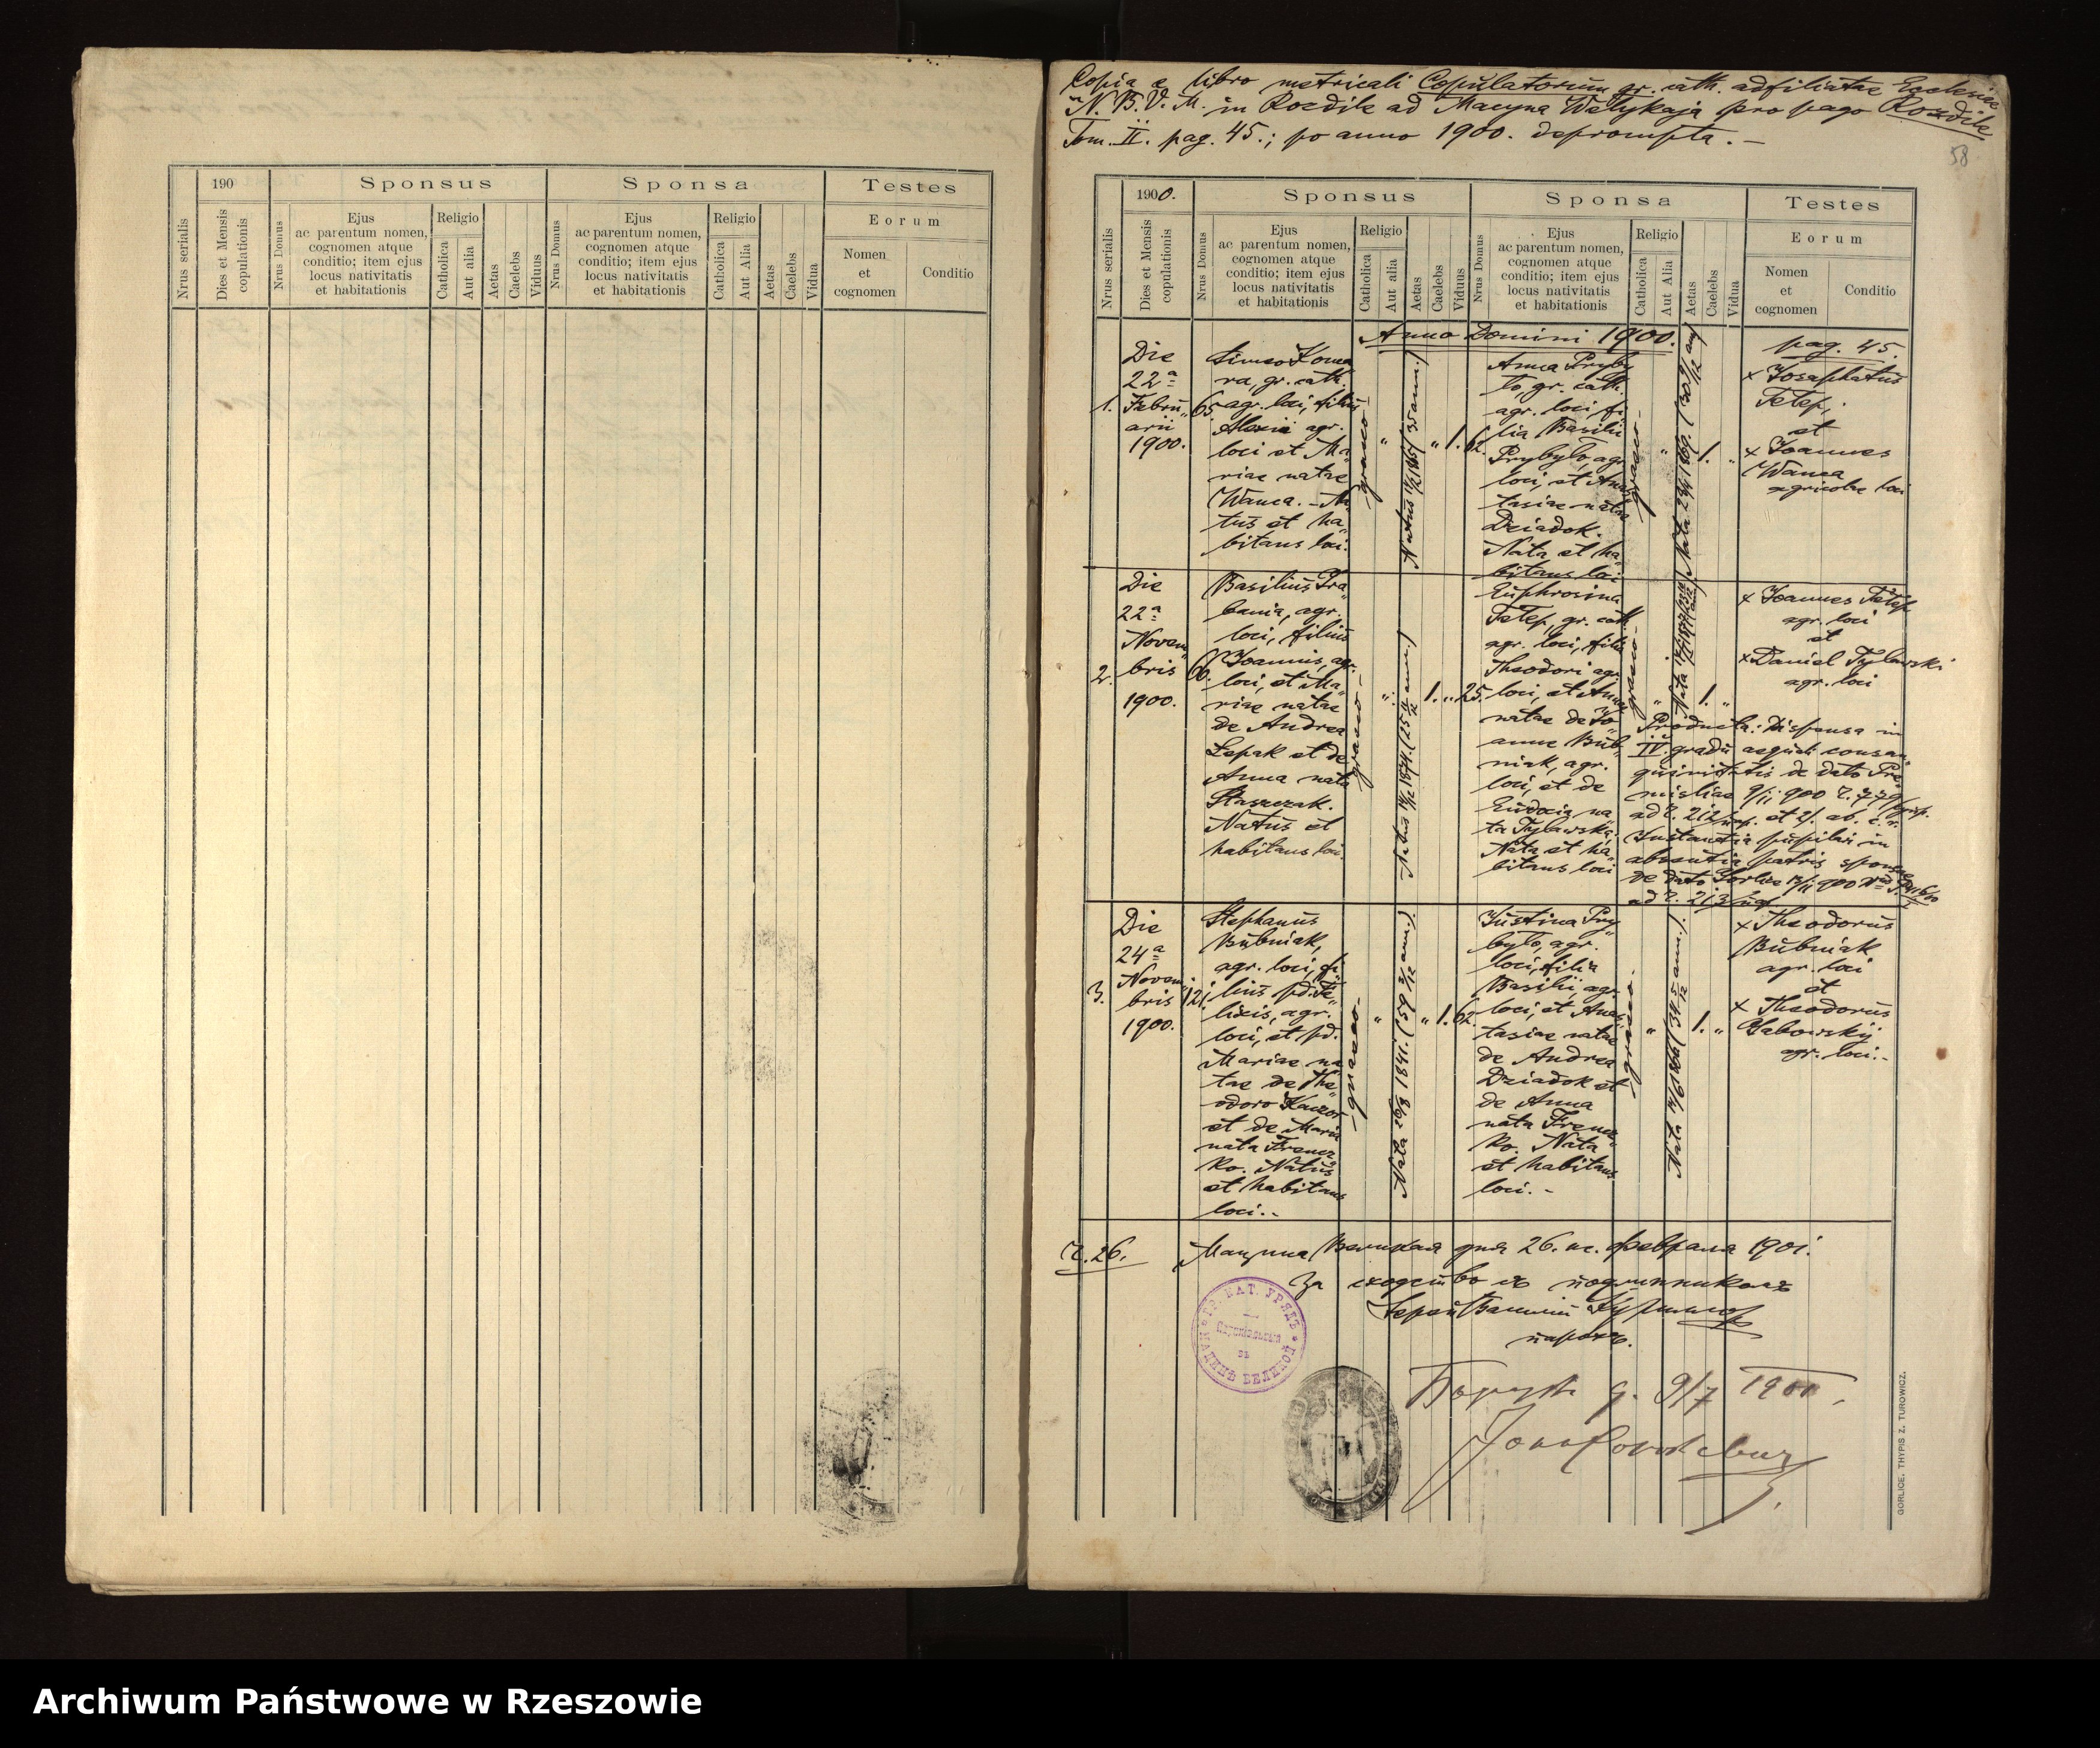 190
Sponsus
Sponsa
Testes
Nrus serialis
Dies et Mensis copulationis
Nrus Domus
Ejus
ac parentum nomen,
cognomen atque
conditio; item ejus
locus nativitatis
et habitationis
Religio
Catholica
Aut alia
Aetas
Caelebs
Viduus
Nrus Domus
Ejus
ac parentum nomen,
cognomen atque
conditio; item ejus
locus nativitatis
et habitationis
Religio
Catholica
Aut Alia
Aetas
Caelebs
Vidua
Eorum
Nomen
et
cognomen
Conditio
Copia e libro metricali Copulatorum gr. cath. adfiliatae Ecclesiae
"N. B. V. M. in Rozdile ad Macyna Welykaja pro pago Rozdile
Tom. II. pag. 45.; po anno 1900. deprompta. –
58
1900.
Sponsus
Sponsa
Testes
Nrus serialis
Dies et Mensis copulationis
Nrus Domus
Ejus
ac parentum nomen,
cognomen atque
conditio; item ejus
locus nativitatis
et habitationis
Religio
Catholica
Aut alia
Aetas
Caelebs
Viduus
Nrus Domus
Ejus
ac parentum nomen,
cognomen atque
conditio; item ejus
locus nativitatis
et habitationis
Religio
Catholica
Aut Alia
Aetas
Caelebs
Vidua
Eorum
Nomen
et
cognomen
Conditio
Anno Domini 1900.
pag. 45.
1.
Die
22a
Febru„
arii
1900.
65.
Simeo Koma
ra, gr. cath.
agr. loci, filius
Alexii agr.
loci et Ma„
riae natae
Wanca. – Na„
tus et ha„
bitans loci.
graeco
1.
62.
Anna Pryby
ło, gr. cath.
agr. loci, fi
lia Basilii
Prybyło, agr.
loci, et Anas
tasiae natae
Dziadok.
Nata et ha„
bitans loci
graeco
1.
x Josaphatus
Fetep,
et
x Joannes
Wanca
agricolae loci
2.
Die
22a
Novem„
bris
1900.
66.
Basilius
bania, agr.
loci, filius
Joannis, agr.
loci, et Ma„
riae natae
de Andrea
Lepak et de
Anna nata
Staszczak.
Natus et
habitans loci.
graeco
1.
25.
Euphrosina
Fetep, gr. cath.
agr. loci, filia
Theodori agr.
loci, et Annae
natae de Jo„
anne Bub„
niak, agr.
loci, et de
Eudocia na„
ta Tylawska.
Nata et ha„
bitans loci
graeco
1.
x Joannes Fetep
agr. loci
et
x Daniel Tylawski
agr. loci
Producta: Dispensa in
IV. gradu aequali consan„
guinitatis de dato Pre„
misliae 9/11 900
absentia patris sponsae
3.
Die
24a
Novem„
bris
1900.
121.
Stephanus
Bubniak,
agr. loci, fi„
lius pd. Fe„
licis, agr.
loci, et pd.
Mariae na„
tae de The„
odoro Kaczor
et de Maria
nata Frencz„
ko. Natus
et habitans
loci. -
graeco
1.
62.
Justina Pry„
było, agr.
loci, filia
Basilii, agr.
loci, et Anas„
tasiae natae
de Andrea
Dziadok et
de Anna
nata Frencz„
ko. Nata
et habitans
loci. -
graeco
1.
x Theodorus
Bubniak
agr. loci
et
x Theodorus
agr. loci. -
Ч. 26.
Мацина Великая дня 26. м. февраля 1901.
За сходство съ подлинникомъ
парохъ.
ГР. КАТ. УРЯДЪ
ВЪ
МАЦИНѢ ВЕЛИКОЙ
9/7
GORLICE. THYPIS Z. TUROWICZ.
Archiwum Państwowe w Rzeszowie